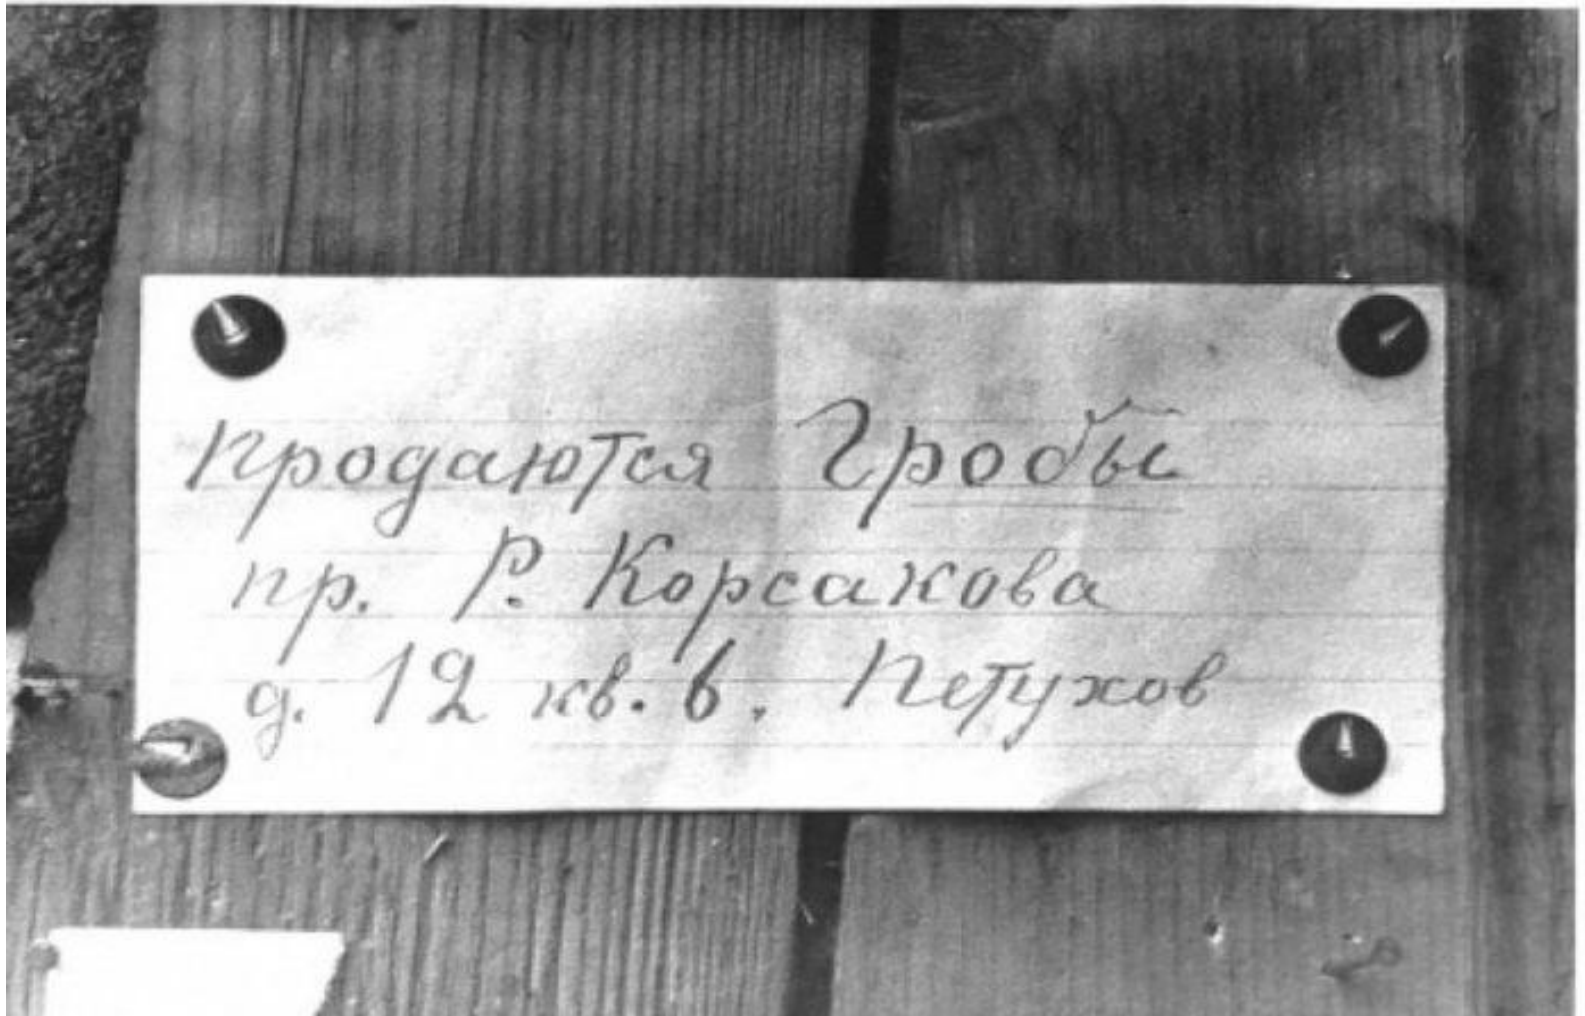 Продаются Гробы
пр. Р. Корсакова
д. 12 кв. 6. Петухов